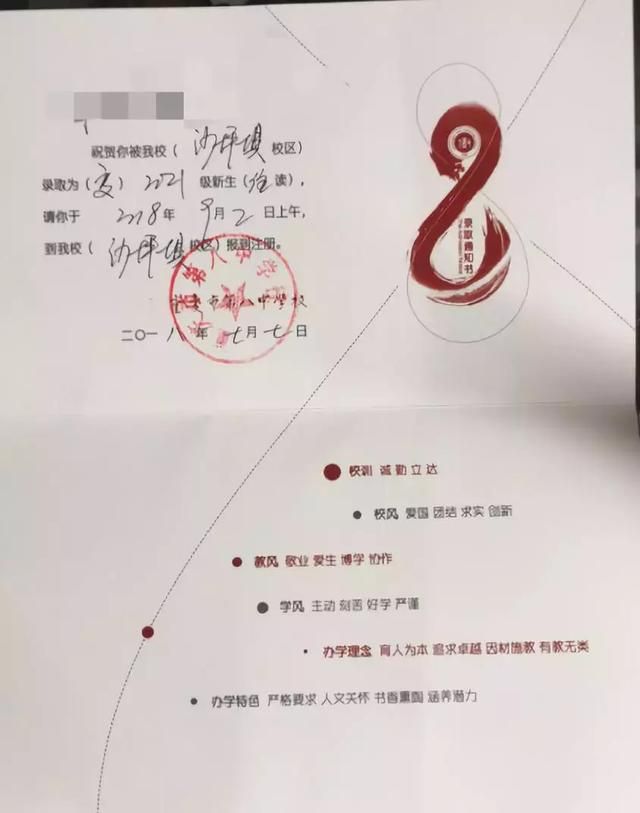 祝贺你被我校（沙坪坝校区）
录取为（高）2021级新生（住读），
请你于2018年9月2日上午，
到我校（沙坪坝校区）报到注册。
重庆市第八中学校
二〇一八年七月七日
录取通知书
校训 诚 勤 立 达
校风 爱国 团结 求实 创新
教风 敬业 爱生 博学 协作
学风 主动 刻苦 好学 严谨
办学理念 育人为本 追求卓越 因材施教 有教无类
办学特色 严格要求 人文关怀 书香熏陶 涵养潜力